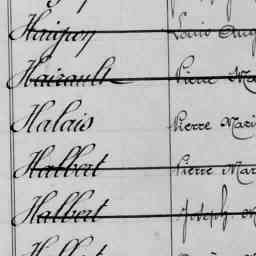 Haupon Louis Aug
Hairault Pierre Ma
Halais Pierre Mari
Halbert Pierre Mar
Halbert Joseph M
Halbert